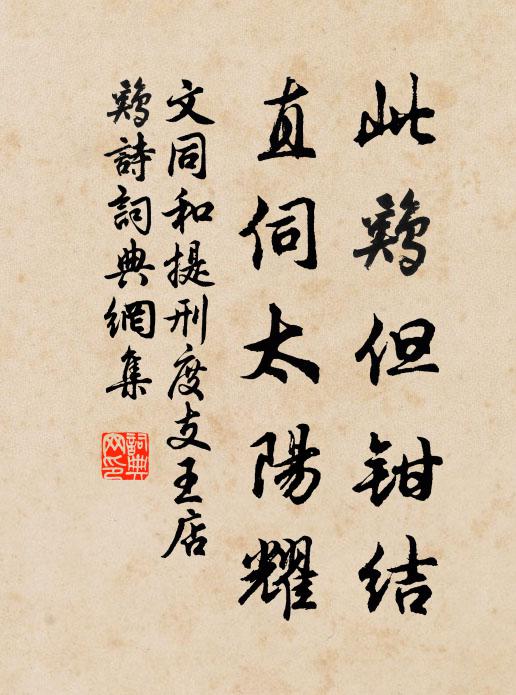 此鷄但鉗結
直伺太陽耀
文同和提刑度支王店
鷄詩詞典網集
詞典网印